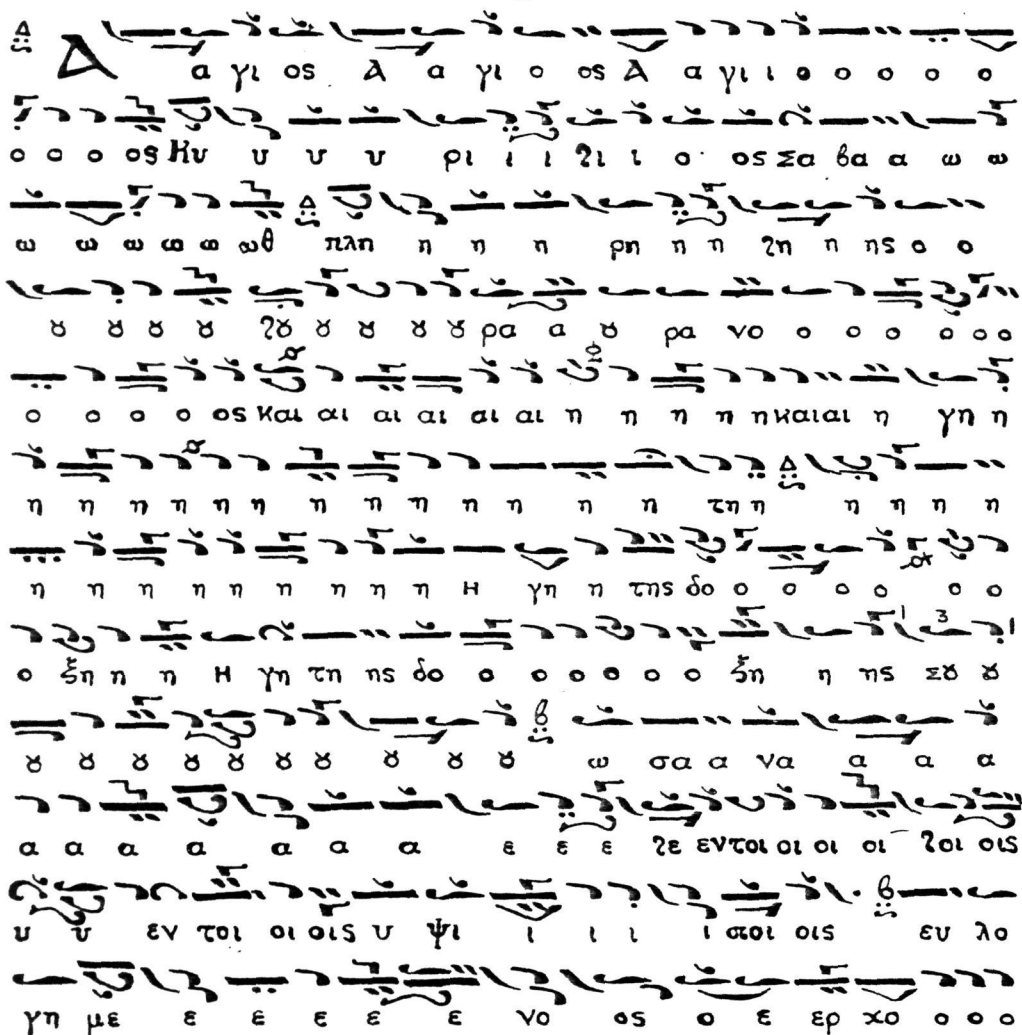 Α α γι ος Α α γι ο ος Α α γι ι ο ο ο ο ο
ο ο ο ος Κυ υ υ υ ρι ι ι ι ι ο ος Σα βα α ω ω
ω ω ω ω ω ωθ πλη η η η ρη η η η η ης ο ο
ȣ ȣ ȣ ȣ ȣ ȣ ȣ ȣ ȣ ρα α ȣ ρα νο ο ο ο ο ο ο
ο ο ο ο ος και αι αι αι αι αι η η η η η και αι η γη η
η η η η η η η η η η η η η η τη η η η η η
η η η η η η η η η Η γη η της δο ο ο ο ο ο ο
ο ξη η η Η γη τη ης δο ο ο ο ο ο ο ξη η ης Σȣ ȣ
ȣ ȣ ȣ ȣ ȣ ȣ ȣ ȣ ȣ ȣ ω σα α να α α α
α α α α α α α ε ε ε ε εν τοι οι οι οι οι οις
υ υ εν τοι οι οις υ ψι ι ι ι ι σοι οις ευ λο
γη με ε ε ε ε ε νο ος ο ε ερ χο ο ο ο